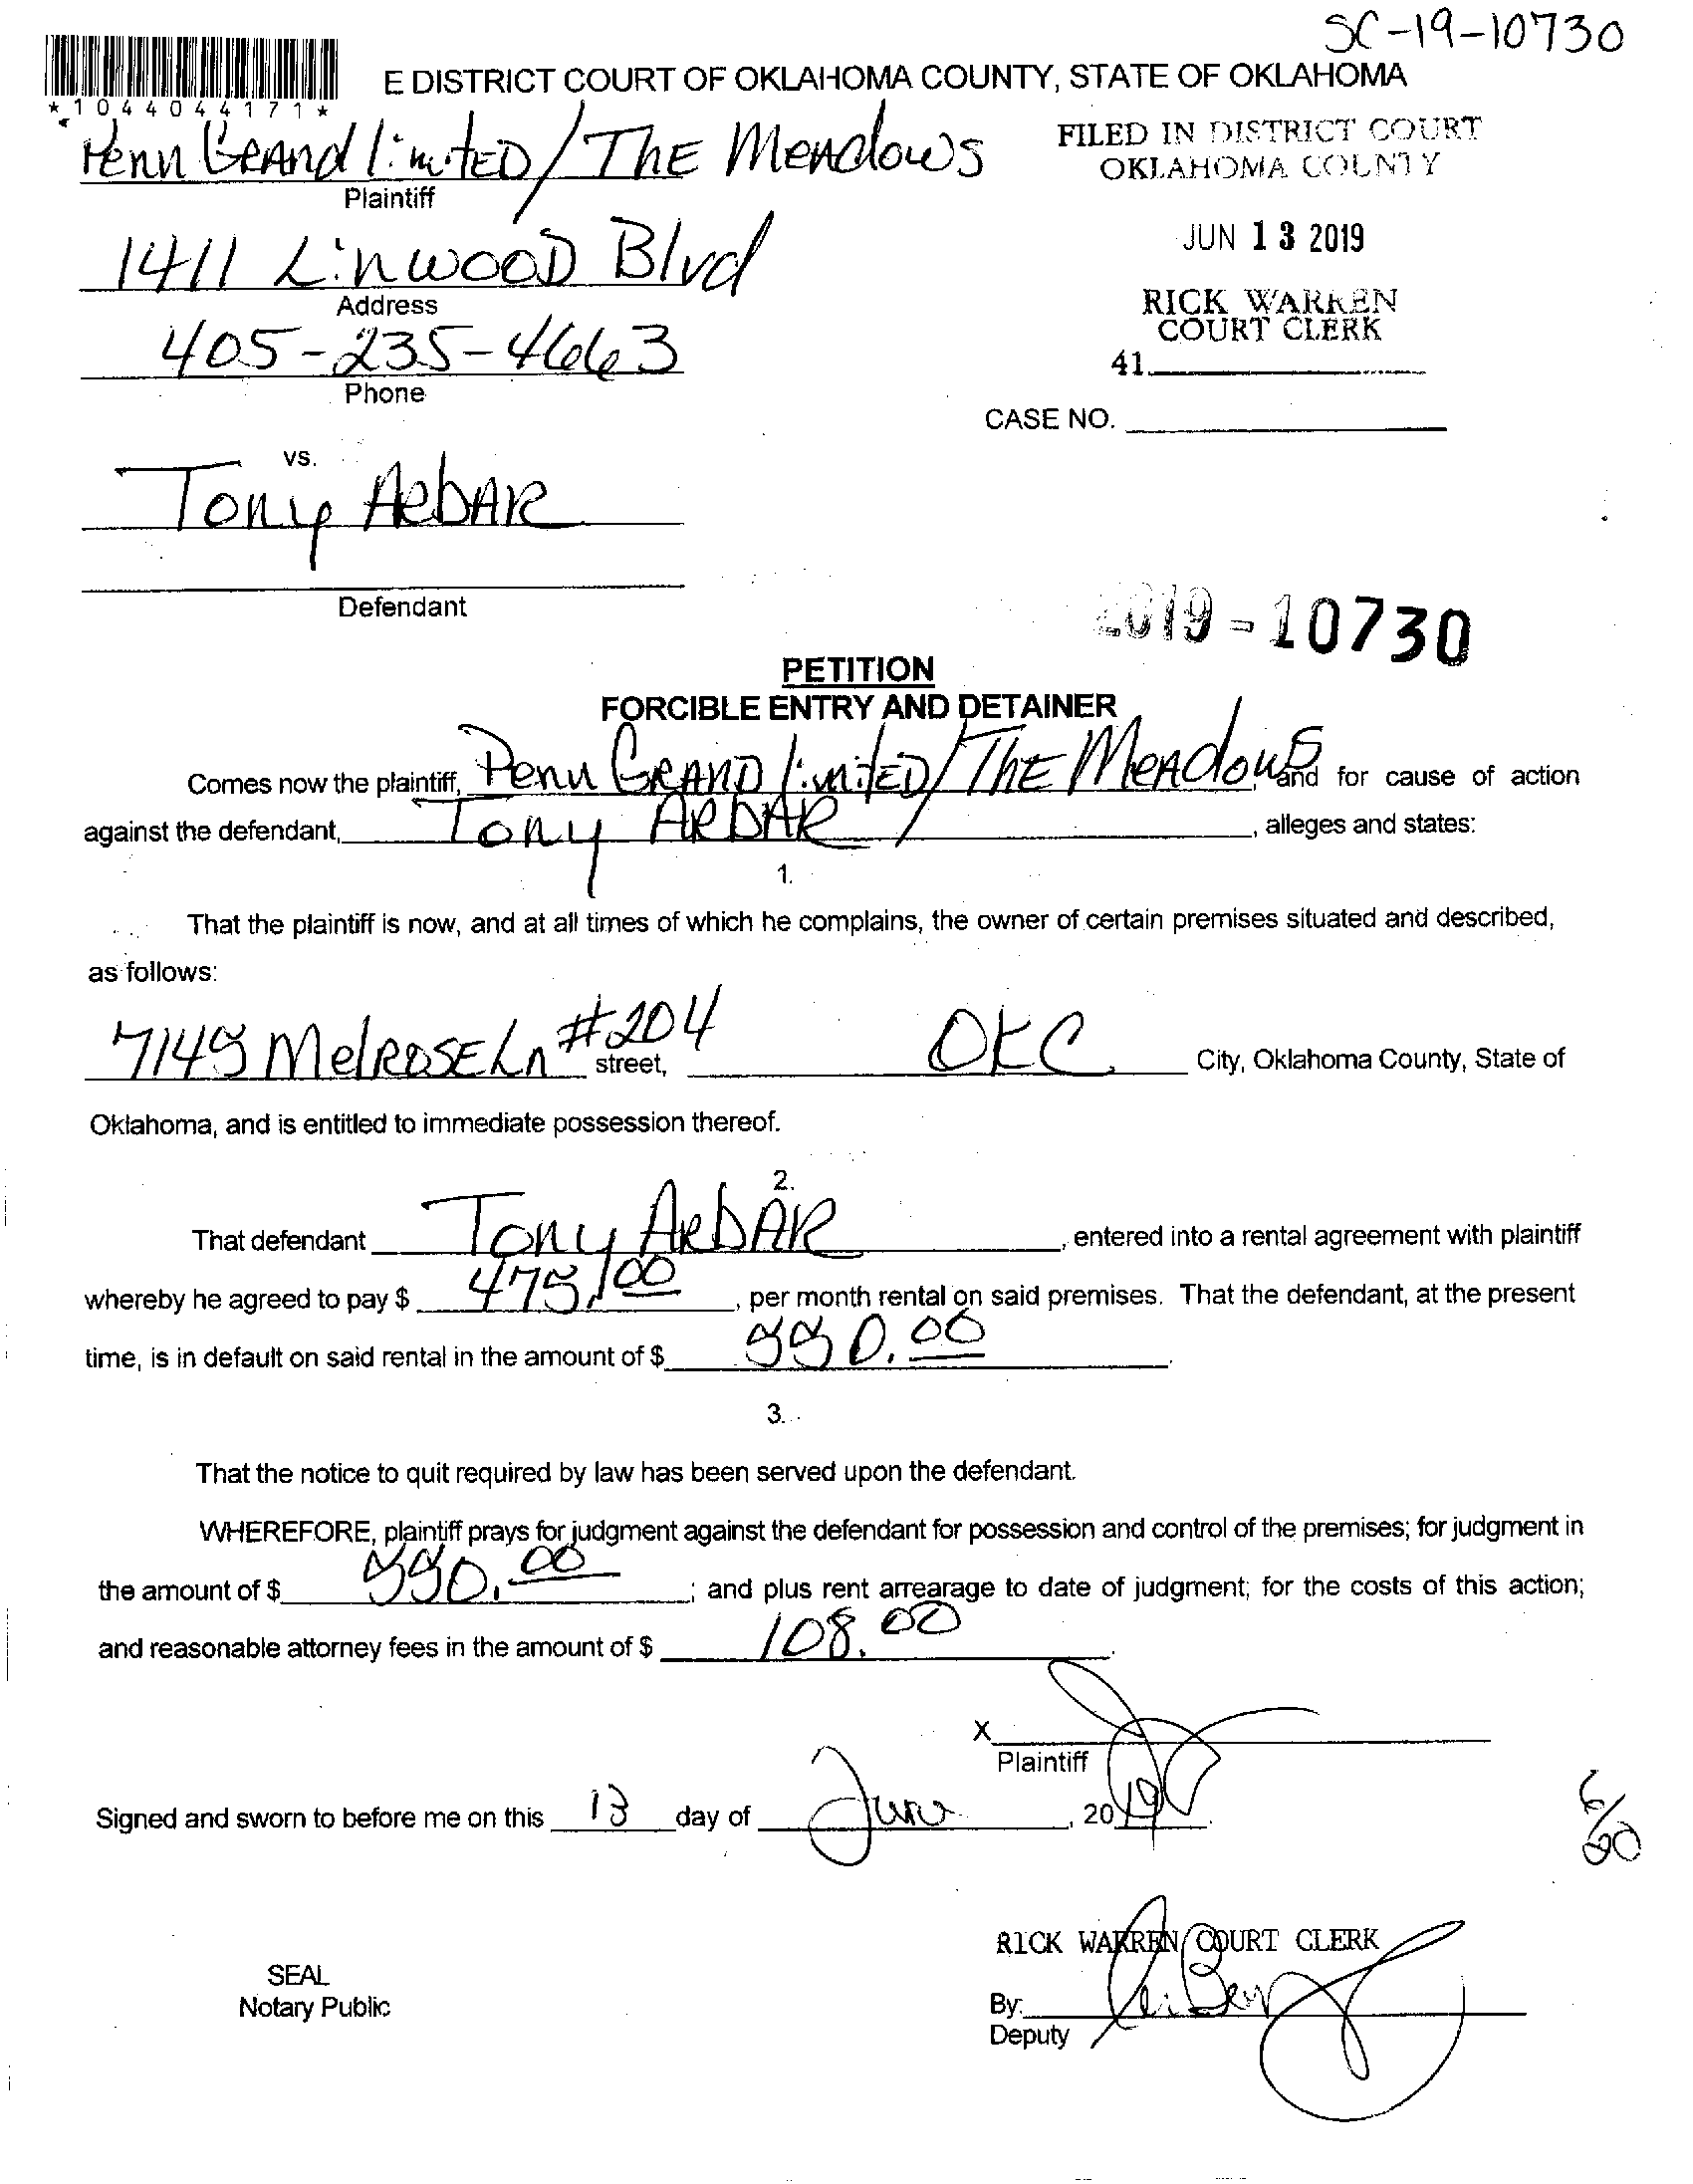 SC-19-10730
E DISTRICT COURT OF OKLAHOMA COUNTY, STATE OF OKLAHOMA
*1044044171*
Penn Grand Limited / The Meadows
Plaintiff
FILED IN DISTRICT COURT
OKLAHOMA COUNTY
1411 Linwood Blvd
Address
JUN 13 2019
RICK WARREN
COURT CLERK
405-235-4663
Phone
41.
CASE NO.
vs.
Tony Arbar
Defendant
2019-10730
PETITION
FORCIBLE ENTRY AND DETAINER
Comes now the plaintiff, Penn Grand Limited / The Meadows, and for cause of action
against the defendant, Tony Arbar, alleges and states:
1.
That the plaintiff is now, and at all times of which he complains, the owner of certain premises situated and described,
as follows:
7145 Melrose Ln #204 street, OKC City, Oklahoma County, State of
Oklahoma, and is entitled to immediate possession thereof.
2.
That defendant Tony Arbar, entered into a rental agreement with plaintiff
whereby he agreed to pay $ 475.00, per month rental on said premises. That the defendant, at the present
time, is in default on said rental in the amount of $ 550.00.
3.
That the notice to quit required by law has been served upon the defendant.
WHEREFORE, plaintiff prays for judgment against the defendant for possession and control of the premises; for judgment in
the amount of $ 550.00; and plus rent arrearage to date of judgment; for the costs of this action;
and reasonable attorney fees in the amount of $ 108.00.
X
Plaintiff
Signed and sworn to before me on this 13 day of June, 2019.
RICK WARREN COURT CLERK
SEAL
Notary Public
By:
Deputy